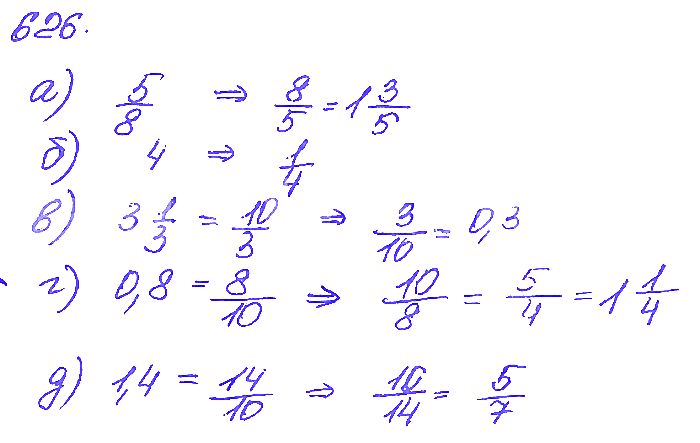 626.
а) 5/8 ⇒ 8/5 = 1 3/5
б) 4 ⇒ 1/4
в) 3 1/3 = 10/3 ⇒ 3/10 = 0,3
г) 0,8 = 8/10 ⇒ 10/8 = 5/4 = 1 1/4
д) 1,4 = 14/10 ⇒ 10/14 = 5/7